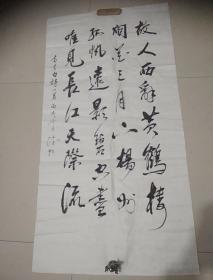 故人西辭黃鶴樓
烟花三月下揚州
孤帆遠影碧空盡
唯見長江天際流